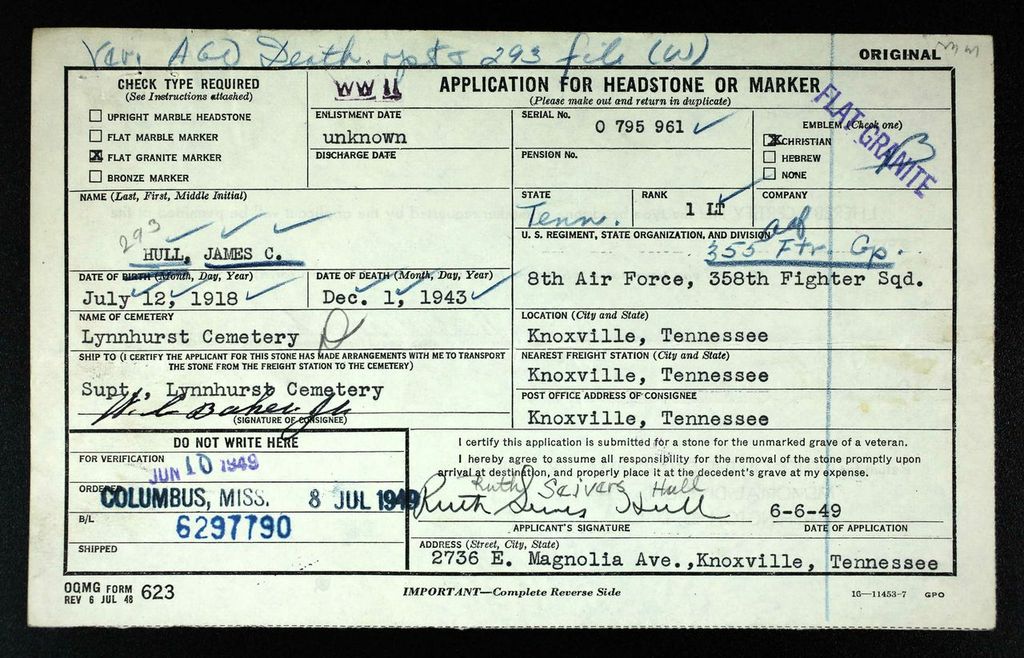 Death. 293 file (W)
ORIGINAL
CHECK TYPE REQUIRED
(See Instructions attached)
UPRIGHT MARBLE HEADSTONE
FLAT MARBLE MARKER
FLAT GRANITE MARKER
BRONZE MARKER
WW II
APPLICATION FOR HEADSTONE OR MARKER
(Please make out and return in duplicate)
ENLISTMENT DATE
unknown
DISCHARGE DATE
SERIAL No.
O 795 961
PENSION No.
EMBLEM (Check one)
CHRISTIAN
HEBREW
NONE
FLAT GRANITE
NAME (Last, First, Middle Initial)
293
HULL, JAMES C.
STATE
Tenn.
RANK
1 LT
COMPANY
U. S. REGIMENT, STATE ORGANIZATION, AND DIVISION
355 Ftr. Gp.
8th Air Force, 358th Fighter Sqd.
DATE OF BIRTH (Month, Day, Year)
July 12, 1918
DATE OF DEATH (Month, Day, Year)
Dec. 1, 1943
NAME OF CEMETERY
Lynnhurst Cemetery
LOCATION (City and State)
Knoxville, Tennessee
SHIP TO (I CERTIFY THE APPLICANT FOR THIS STONE HAS MADE ARRANGEMENTS WITH ME TO TRANSPORT
THE STONE FROM THE FREIGHT STATION TO THE CEMETERY)
Supt., Lynnhurst Cemetery
(SIGNATURE OF CONSIGNEE)
NEAREST FREIGHT STATION (City and State)
Knoxville, Tennessee
POST OFFICE ADDRESS OF CONSIGNEE
Knoxville, Tennessee
DO NOT WRITE HERE
FOR VERIFICATION
JUN 10 1949
ORDERED
COLUMBUS, MISS. 8 JUL 1949
B/L
6297790
SHIPPED
I certify this application is submitted for a stone for the unmarked grave of a veteran.
I hereby agree to assume all responsibility for the removal of the stone promptly upon
arrival at destination, and properly place it at the decedent's grave at my expense.
Ruth Seivers Hull
Ruth Seivers Hull
6-6-49
APPLICANT'S SIGNATURE
DATE OF APPLICATION
ADDRESS (Street, City, State)
2736 E. Magnolia Ave.,Knoxville, Tennessee
OQMG FORM 623
REV 6 JUL 48
IMPORTANT—Complete Reverse Side
16—11453-7 GPO